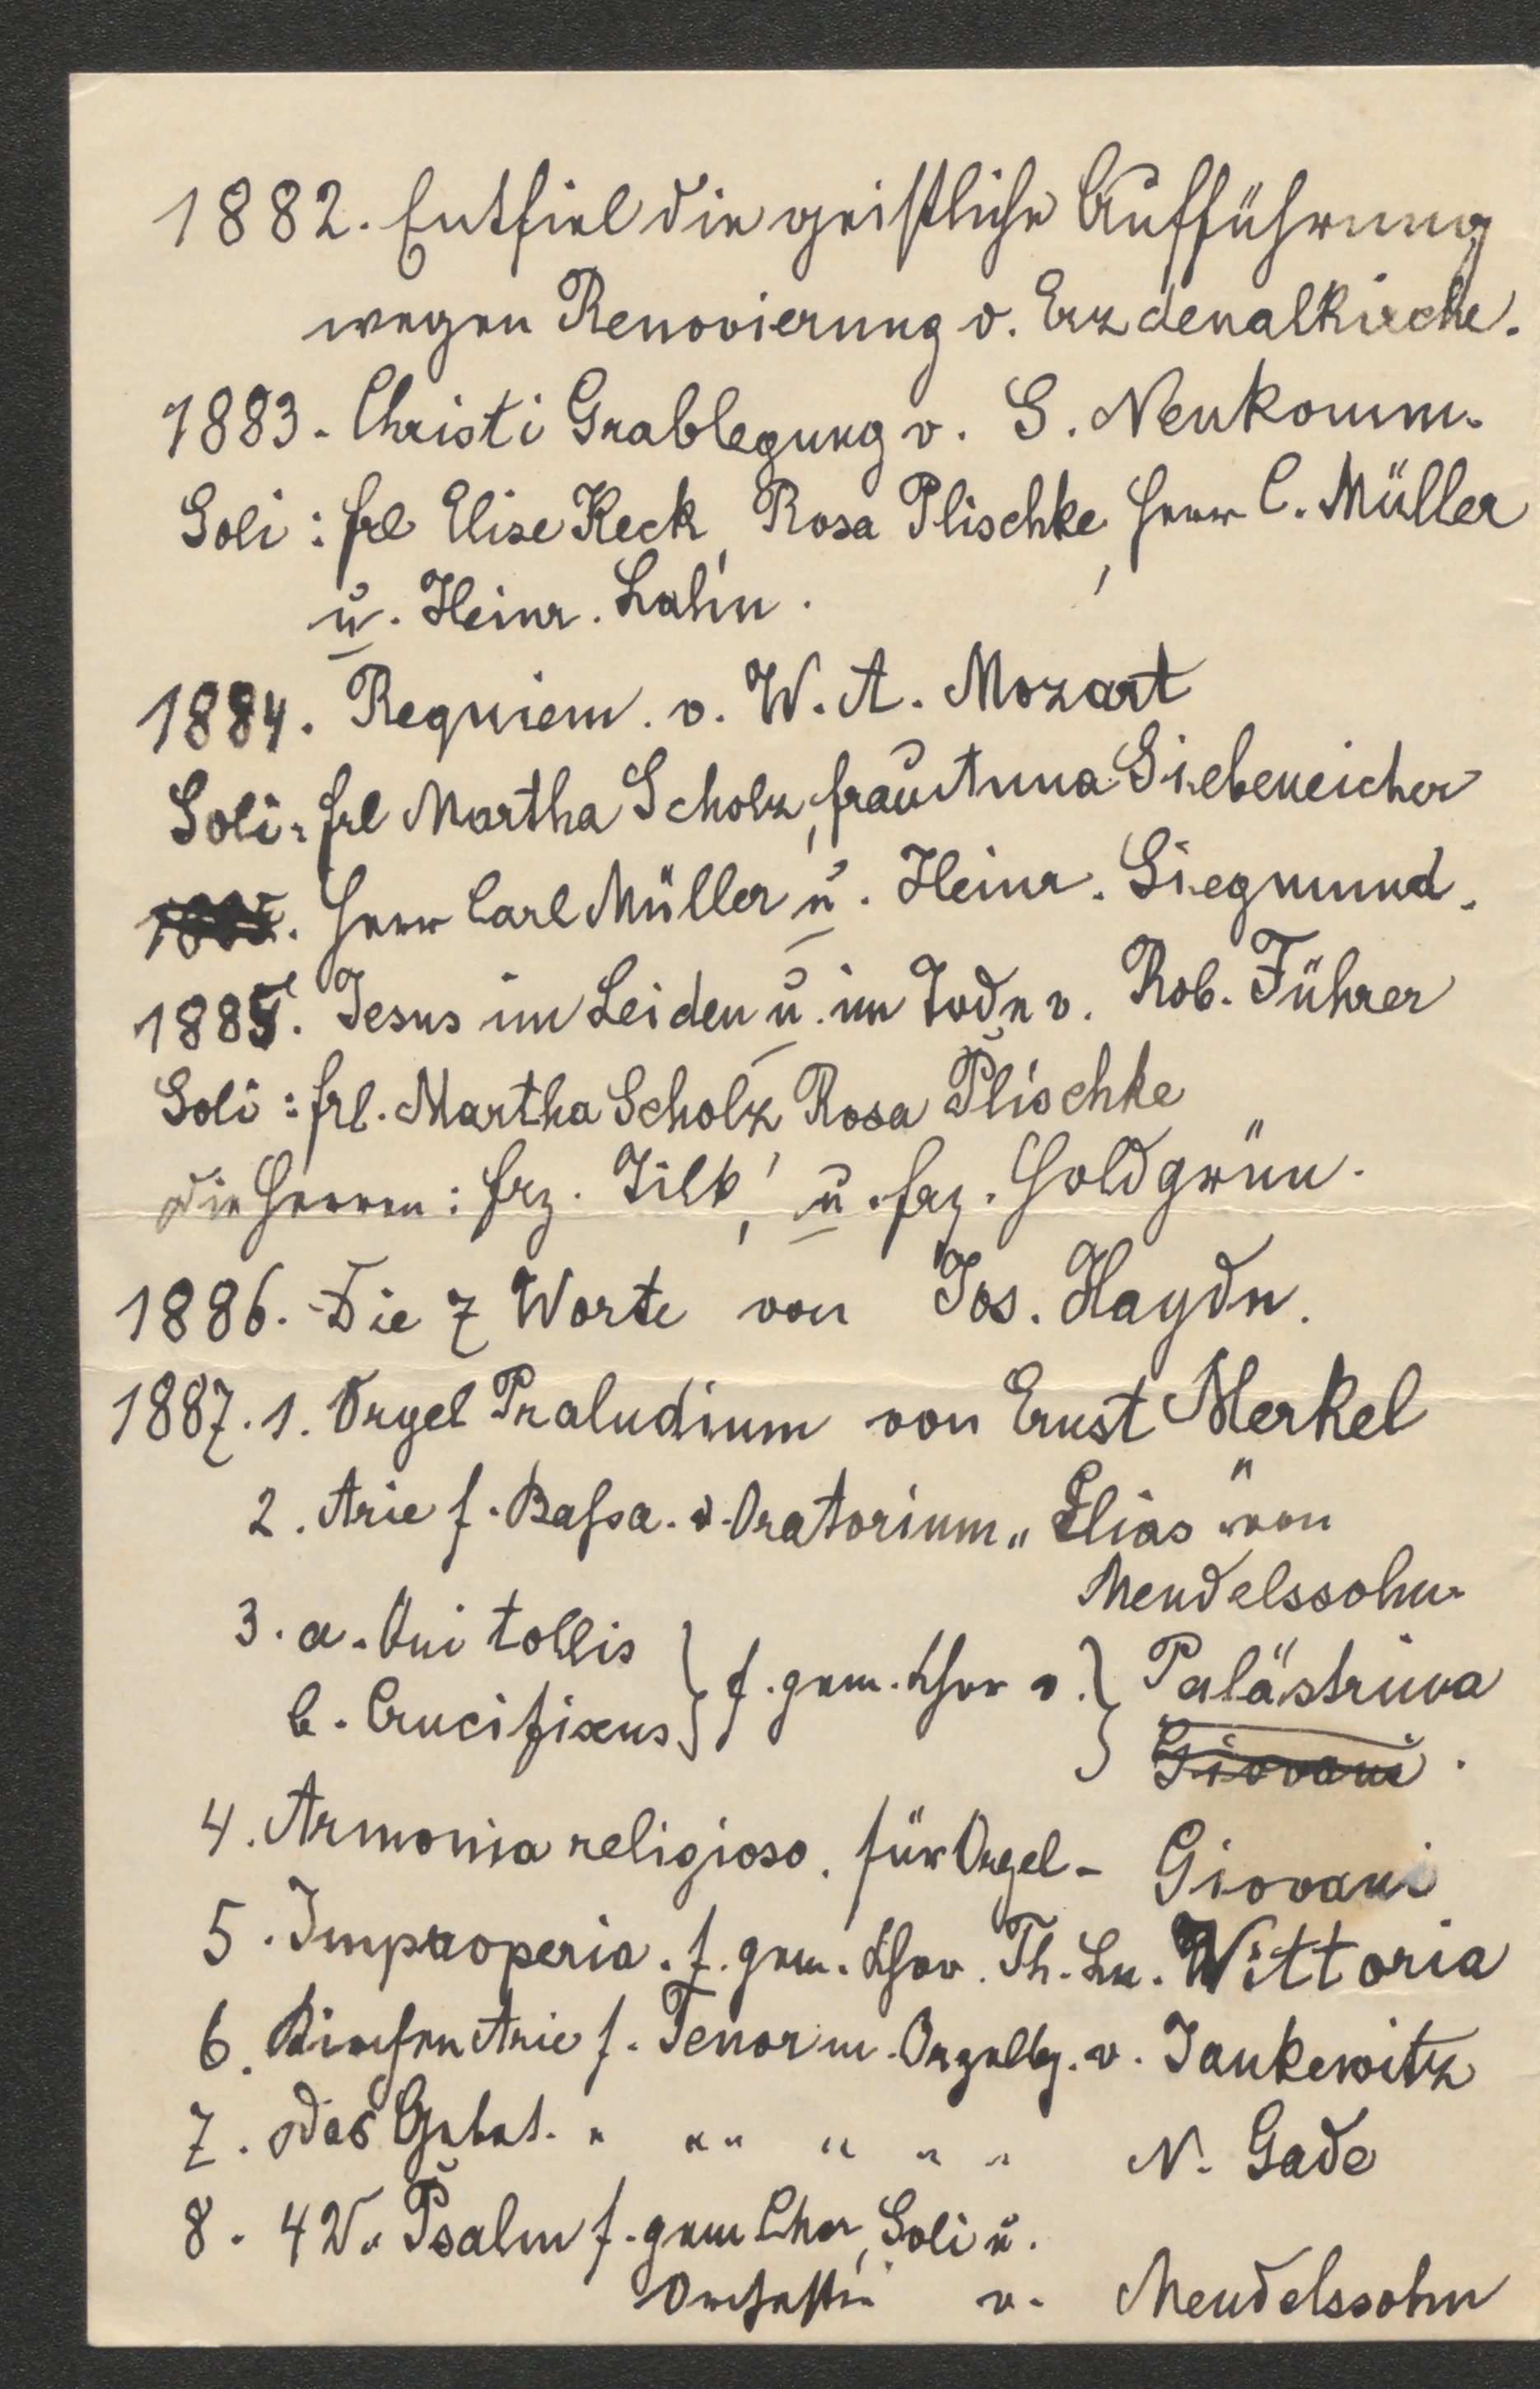 1882. Entfiel die geistliche Aufführung
wegen Renovierung d. Erzdekanalkirche.
1883. Christi Grablegung v. S. Neukomm.
Soli: Frl Elise Keck, Rosa Plischke, Herr C. Müller
u. Heinr. Lahn.
1884. Requiem. v. W. A. Mozart
Soli: Frl Martha Scholz, Frau Anna Siebeneicher
Herr Carl Müller u. Heinr. Siegmund.
1885. Jesus im Leiden u. im Tode v. Rob. Führer
Soli: Frl. Martha Scholz Rosa Plischke
Die Herren: Frz. Tilk, u. Frz. Goldgrün.
1886. Die 7 Worte von Jos. Haydn.
1887. 1. Orgel Praludium von Ernst Merkel
2. Arie f. Bass a. d. Oratorium „Elias" von
Mendelssohn.
3. a. Qui tollis
b. Crucifixus } f. gem. Chor v. } Palästrina
Giovani.
4. Armonia religioso. für Orgel - Giovani
5. Improperia. f. gem. Chor. Th. Lu. Wittoria
6. Kirchen Arie f. Tenor m. Orgelbg. v. Jankewitz
7. Das Gebet. " " " " " " N. Gade
8. 42. Psalm f. gem Chor, Soli u.
Orchester v. Mendelssohn